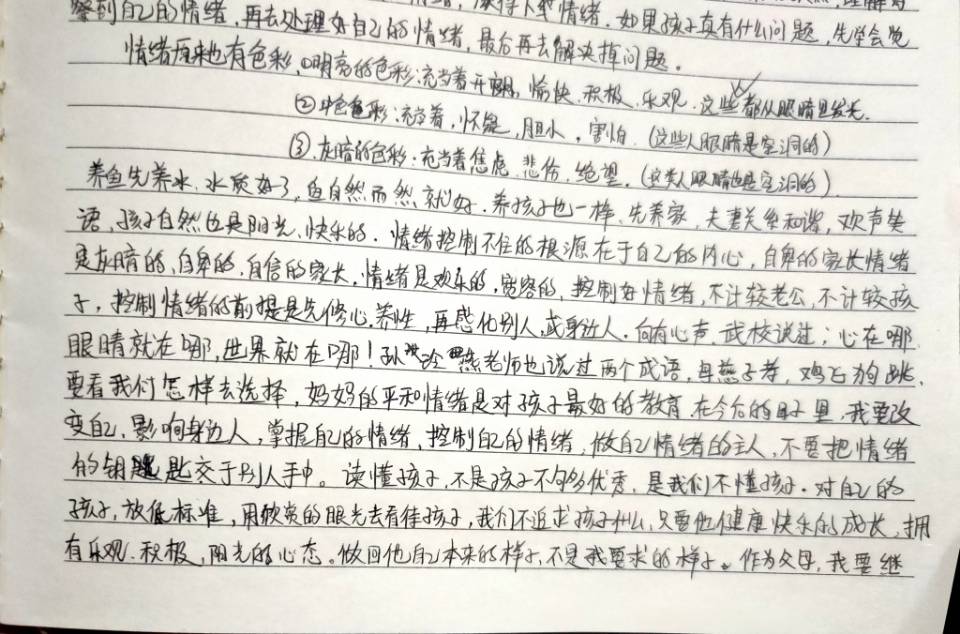 察到自己的情绪，再去处理好自己的情绪，最后再去解决掉问题。如果孩子真有什么问题，先学会觉
情绪原来也有色彩，①明亮的色彩：充当着开朗，愉快，积极，乐观，这些都从眼睛里发光。
②中色色彩：充当着，怀疑，胆小，害怕．(这些人眼睛是空洞的)
③灰暗的色彩：充当着焦虑，悲伤，绝望．(这类人眼睛也是空洞的)
养鱼先养水，水质好了，鱼自然而然就好．养孩子也一样，先养家，夫妻关系和谐，欢声笑
语，孩子自然也是阳光、快乐的．情绪控制不住的根源在于自己的内心，自卑的家长情绪
是灰暗的，自卑的，自信的家长，情绪是欢乐的，宽容的，控制好情绪，不计较老公，不计较孩
子，控制情绪的前提是先修心，养性，再感化别人，或身边人．向有心声 武校说过；心在哪
眼睛就在哪，世界就在哪！孙 玲 燕老师也说过两个成语，母慈子孝，鸡飞狗跳，
要看我们怎样去选择，妈妈的平和情绪是对孩子最好的教育 在今后的日子里，我要改
变自己，影响身边人，掌握自己的情绪，控制自己的情绪，做自己情绪的主人，不要把情绪
的钥匙交于别人手中。读懂孩子，不是孩子不够优秀，是我们不懂孩子．对自己的
孩子，放低标准，用欣赏的眼光去看待孩子，我们不追求孩子什么，只要他健康快乐的成长，拥
有乐观、积极，阳光的心态。做回他自己本来的样子，不是我要求的样子。作为父母，我要继